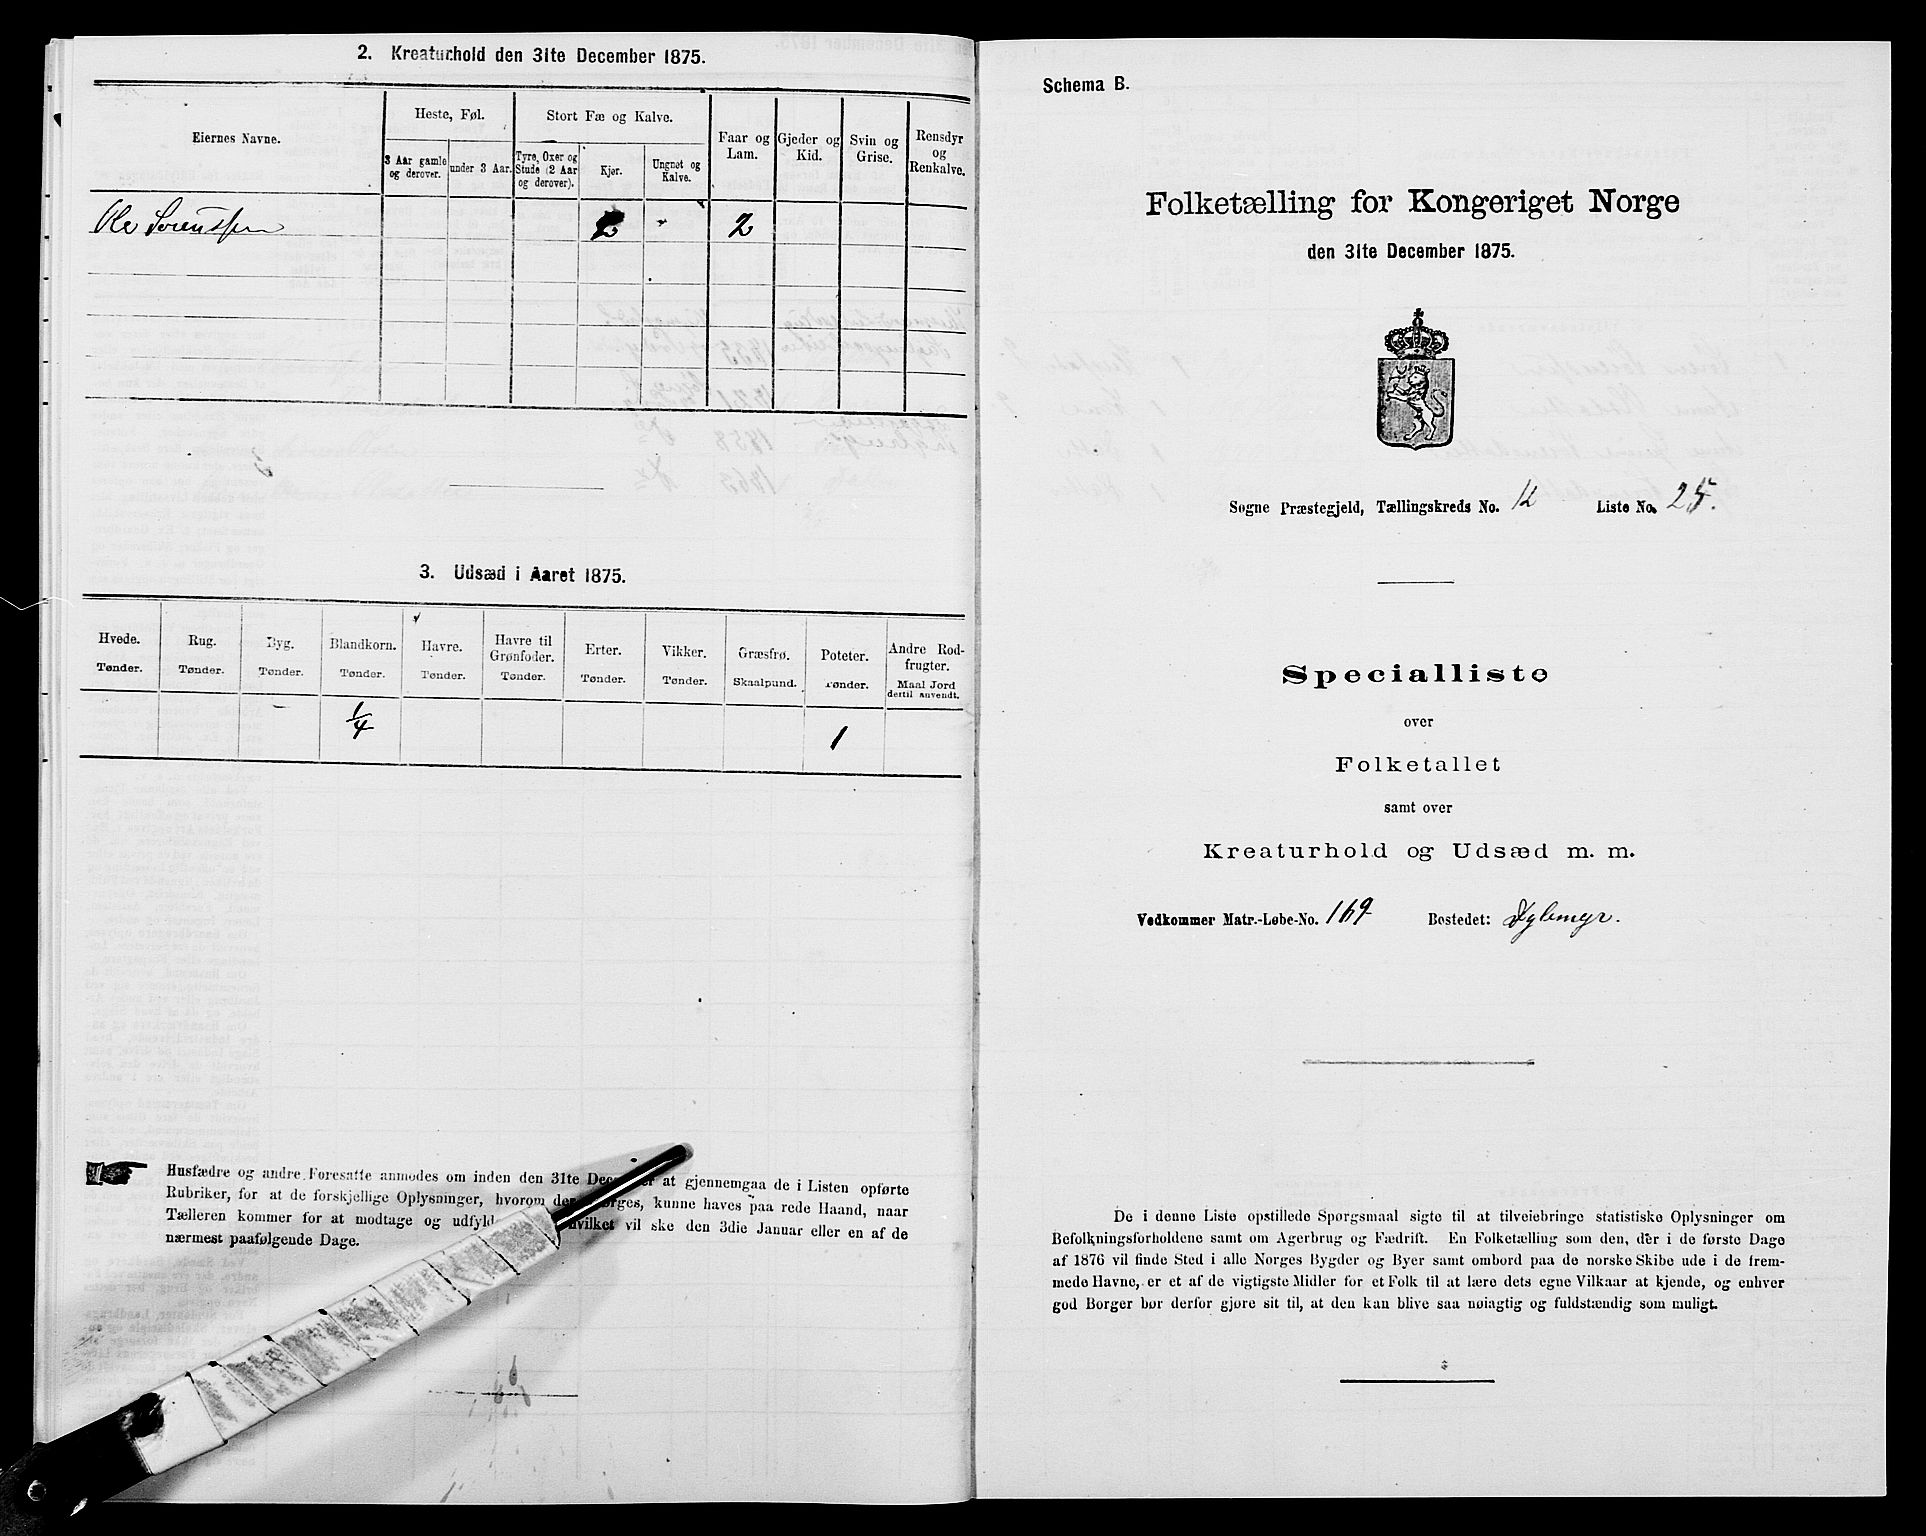 2. Kreaturhold den 31te December 1875.
Eiernes Navne.
Heste, Føl.
Stort Fæ og Kalve.
Faar og Lam.
Gjeder og Kid.
Svin og Grise.
Rensdyr og Renkalve.
3 Aar gamle og derover.
under 3 Aar.
Tyre, Oxer og Stude (2 Aar og derover).
Kjør.
Ungnøt og Kalve.
Ole Sorentssen 2 " 2
3. Udsæd i Aaret 1875.
Hvede. Rug. Byg. Blandkorn. Havre. Havre til Grønfoder. Erter. Vikker. Græsfrø. Poteter. Andre Rodfrugter.
Tønder. Tønder. Tønder. Tønder. Tønder. Tønder. Tønder. Tønder. Skaalpund. Tønder. Maal Jord dertil anvendt.
1/4 1
Husfædre og andre Foresatte anmodes om inden den 31te December at gjennemgaa de i Listen opførte
Rubriker, for at de forskjellige Oplysninger, hvorom der spørges, kunne haves paa rede Haand, naar
Tælleren kommer for at modtage og udfylde hvilket vil ske den 3die Januar eller en af de
nærmest paafølgende Dage.
Schema B.
Folketælling for Kongeriget Norge
den 31te December 1875.
Søgne Præstegjeld, Tællingskreds No. 12 Liste No. 25.
Specialliste
over
Folketallet
samt over
Kreaturhold og Udsæd m. m.
Vedkommer Matr.-Løbe-No. 169 Bostedet:
De i denne Liste opstillede Spørgsmaal sigte til at tilveiebringe statistiske Oplysninger om
Befolkningsforholdene samt om Agerbrug og Fædrift. En Folketælling som den, der i de første Dage
af 1876 vil finde Sted i alle Norges Bygder og Byer samt ombord paa de norske Skibe ude i de frem-
mede Havne, er et af de vigtigste Midler for et Folk til at lære dets egne Vilkaar at kjende, og enhver
god Borger bør derfor gjøre sit til, at den kan blive saa nøiagtig og fuldstændig som muligt.